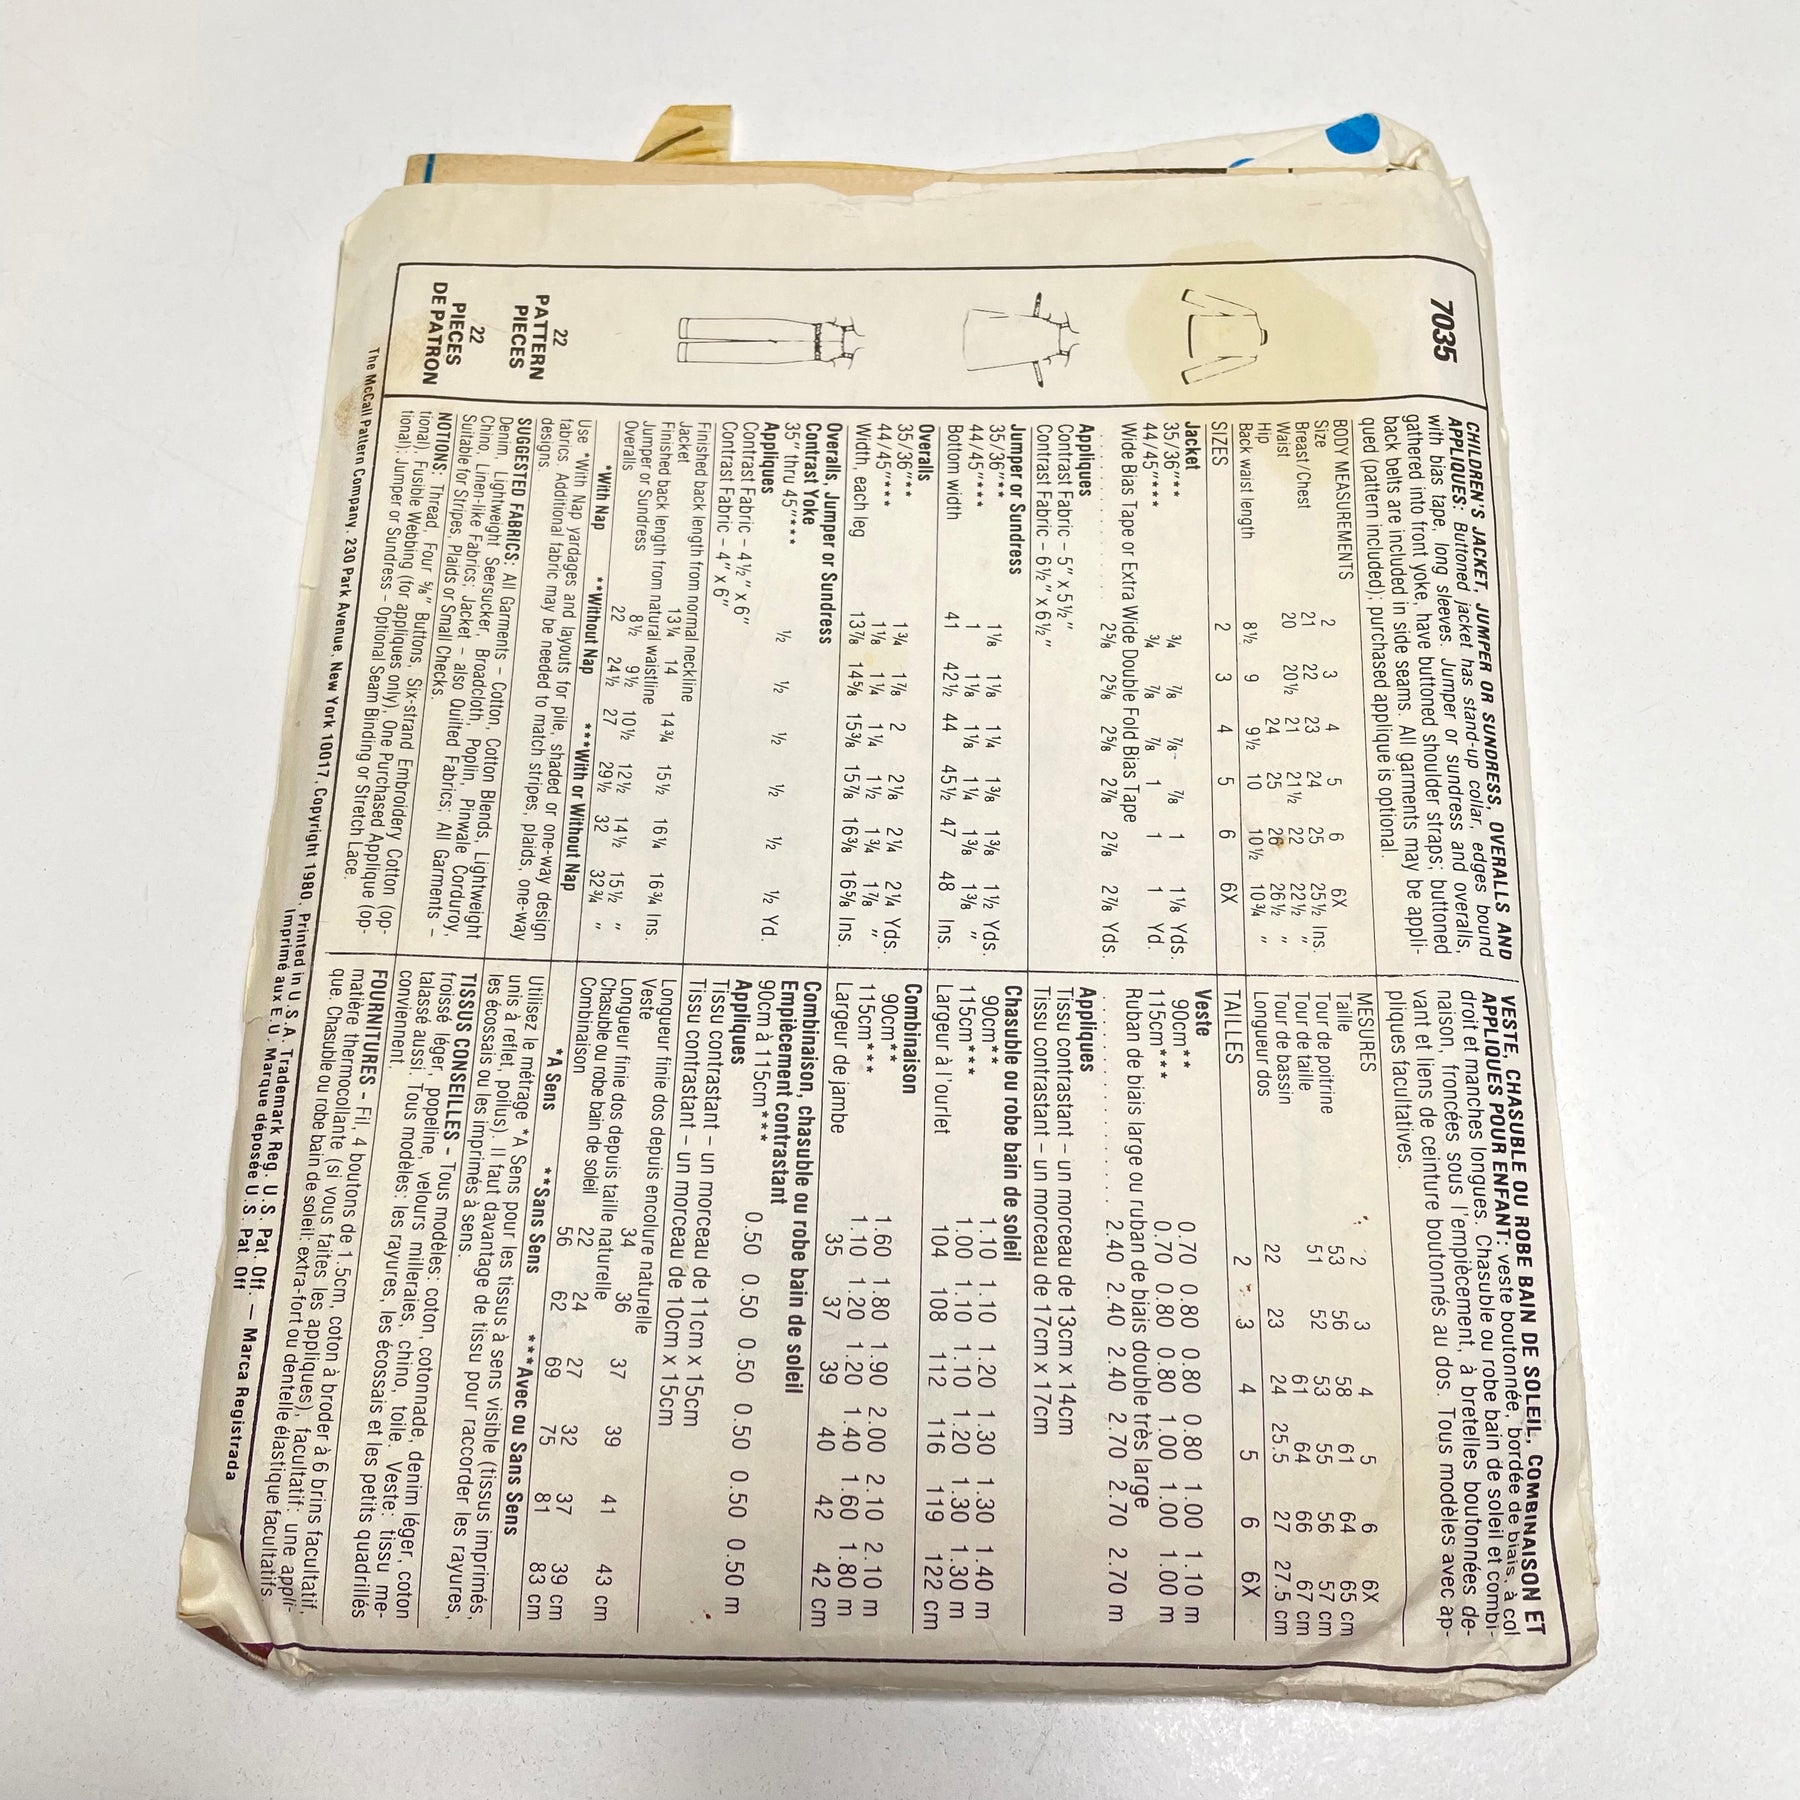 7035
22
PATTERN
PIECES
22
PIECES
DE PATRON
CHILDREN'S JACKET, JUMPER OR SUNDRESS, OVERALLS AND
APPLIQUES: Buttoned jacket has stand-up collar, edges bound
with bias tape, long sleeves. Jumper or sundress and overalls,
gathered into front yoke, have buttoned shoulder straps; buttoned
back belts are included in side seams. All garments may be appli-
qued (pattern included); purchased applique is optional.
BODY MEASUREMENTS
Size 2 3 4 5 6 6X
Breast/Chest 21 22 23 24 25 25½ Ins.
Waist 20 20½ 21 21½ 22 22½ "
Hip 24 25 26 26½ "
Back waist length 8½ 9 9½ 10 10½ 10¾ "
SIZES 2 3 4 5 6 6X
Jacket
35/36"** ¾ ⅞ ⅞ ⅞ 1 1⅛ Yds.
44/45"*** ¾ ⅞ ⅞ 1 1 1 Yd.
Wide Bias Tape or Extra Wide Double Fold Bias Tape
. . . . . . . . . 2⅝ 2⅝ 2⅝ 2⅞ 2⅞ 2⅞ Yds.
Appliques
Contrast Fabric – 5" x 5½"
Contrast Fabric – 6½" x 6½"
Jumper or Sundress
35/36"** 1⅛ 1⅛ 1¼ 1⅜ 1⅜ 1½ Yds.
44/45"*** 1 1⅛ 1⅛ 1¼ 1⅜ 1⅜ "
Bottom width 41 42½ 44 45½ 47 48 Ins.
Overalls
35/36"** 1¾ 1⅞ 2 2⅛ 2¼ 2¼ Yds.
44/45"*** 1⅛ 1¼ 1¼ 1½ 1¾ 1⅞ "
Width, each leg 13⅞ 14⅝ 15⅜ 15⅞ 16⅜ 16⅝ Ins.
Overalls, Jumper or Sundress
Contrast Yoke
35" thru 45"*** ½ ½ ½ ½ ½ ½ Yd.
Appliques
Contrast Fabric – 4½" x 6"
Contrast Fabric – 4" x 6"
Finished back length from normal neckline
Jacket 13¼ 14 14¾ 15½ 16¼ 16¾ Ins.
Finished back length from natural waistline
Jumper or Sundress 8½ 9½ 10½ 12½ 14½ 15½ "
Overalls 22 24½ 27 29½ 32 32¾ "
*With Nap **Without Nap ***With or Without Nap
Use *With Nap yardages and layouts for pile, shaded or one-way design
fabrics. Additional fabric may be needed to match stripes, plaids, one-way
designs.
SUGGESTED FABRICS: All Garments – Cotton, Cotton Blends, Lightweight
Denim, Lightweight Seersucker, Broadcloth, Poplin, Pinwale Corduroy,
Chino, Linen-like Fabrics; Jacket – also Quilted Fabrics; All Garments –
Suitable for Stripes, Plaids or Small Checks.
NOTIONS: Thread, Four ⅝" Buttons, Six-strand Embroidery Cotton (op-
tional), Fusible Webbing (for appliques only), One Purchased Applique (op-
tional); Jumper or Sundress – Optional Seam Binding or Stretch Lace.
VESTE, CHASUBLE OU ROBE BAIN DE SOLEIL, COMBINAISON ET
APPLIQUES POUR ENFANT: veste boutonnée, bordée de biais, à col
droit et manches longues. Chasuble ou robe bain de soleil et combi-
naison, froncées sous l'empiècement, à bretelles boutonnées de-
vant et liens de ceinture boutonnés au dos. Tous modèles avec ap-
pliques facultatives.
MESURES
Taille 2 3 4 5 6 6X
Tour de poitrine 53 56 58 61 64 65 cm
Tour de taille 51 52 53 55 56 57 cm
Tour de bassin 61 64 66 67 cm
Longueur dos 22 23 24 25.5 27 27.5 cm
TAILLES 2 3 4 5 6 6X
Veste
90cm** 0.70 0.80 0.80 0.80 1.00 1.10 m
115cm*** 0.70 0.80 0.80 1.00 1.00 1.00 m
Ruban de biais large ou ruban de biais double très large
. . . . . . . . . 2.40 2.40 2.40 2.70 2.70 2.70 m
Appliques
Tissu contrastant – un morceau de 13cm x 14cm
Tissu contrastant – un morceau de 17cm x 17cm
Chasuble ou robe bain de soleil
90cm** 1.10 1.10 1.20 1.30 1.30 1.40 m
115cm*** 1.00 1.10 1.10 1.20 1.30 1.30 m
Largeur à l'ourlet 104 108 112 116 119 122 cm
Combinaison
90cm** 1.60 1.80 1.90 2.00 2.10 2.10 m
115cm*** 1.10 1.20 1.20 1.40 1.60 1.80 m
Largeur de jambe 35 37 39 40 42 42 cm
Combinaison, chasuble ou robe bain de soleil
Empiècement contrastant
90cm à 115cm*** 0.50 0.50 0.50 0.50 0.50 0.50 m
Appliques
Tissu contrastant – un morceau de 11cm x 15cm
Tissu contrastant – un morceau de 10cm x 15cm
Longueur finie dos depuis encolure naturelle
Veste 34 36 37 39 41 43 cm
Longueur finie dos depuis taille naturelle
Chasuble ou robe bain de soleil 22 24 27 32 37 39 cm
Combinaison 56 62 69 75 81 83 cm
*A Sens **Sans Sens ***Avec ou Sans Sens
Utilisez le métrage *A Sens pour les tissus à sens visible (tissus imprimés,
unis à reflet, poilus). Il faut davantage de tissu pour raccorder les rayures,
les écossais ou les imprimés à sens.
TISSUS CONSEILLES – Tous modèles: coton, cotonnade, denim léger, coton
froissé léger, popeline, velours milleraies, chino, toile. Veste: tissu me-
talassé aussi. Tous modèles: les rayures, les écossais et les petits quadrillés
conviennent.
FOURNITURES – Fil, 4 boutons de 1.5cm, coton à broder à 6 brins facultatif,
matière thermocollante (si vous faites les appliques), facultatif: une appli-
que. Chasuble ou robe bain de soleil: extra-fort ou dentelle élastique facultatifs.
The McCall Pattern Company, 230 Park Avenue, New York 10017, Copyright 1980, Printed in U.S.A. Trademark Reg. U.S. Pat. Off. — Marca Registrada
Imprimé aux E.U. Marque déposée U.S. Pat. Off.